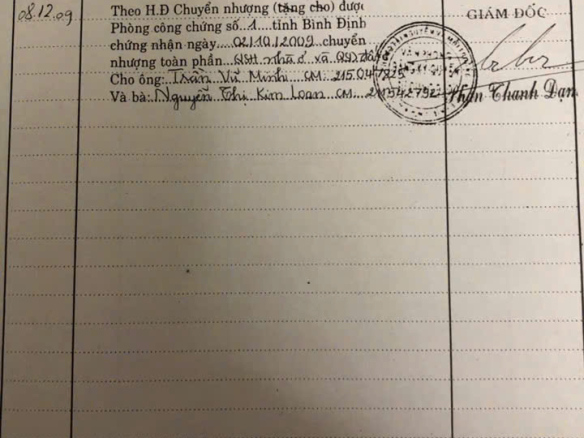 08.12.09
Theo H.Đ Chuyển nhượng (tặng cho) được
Phòng công chứng số 1 tỉnh Bình Định
chứng nhận ngày 02/10/2009 chuyển
nhượng toàn phần QSH nhà ở và QSD đất
Cho ông: Trần Vũ Minh CM:
Và bà: Nguyễn Thị Kim Loan CM
GIÁM ĐỐC
Phan Thanh Đạn